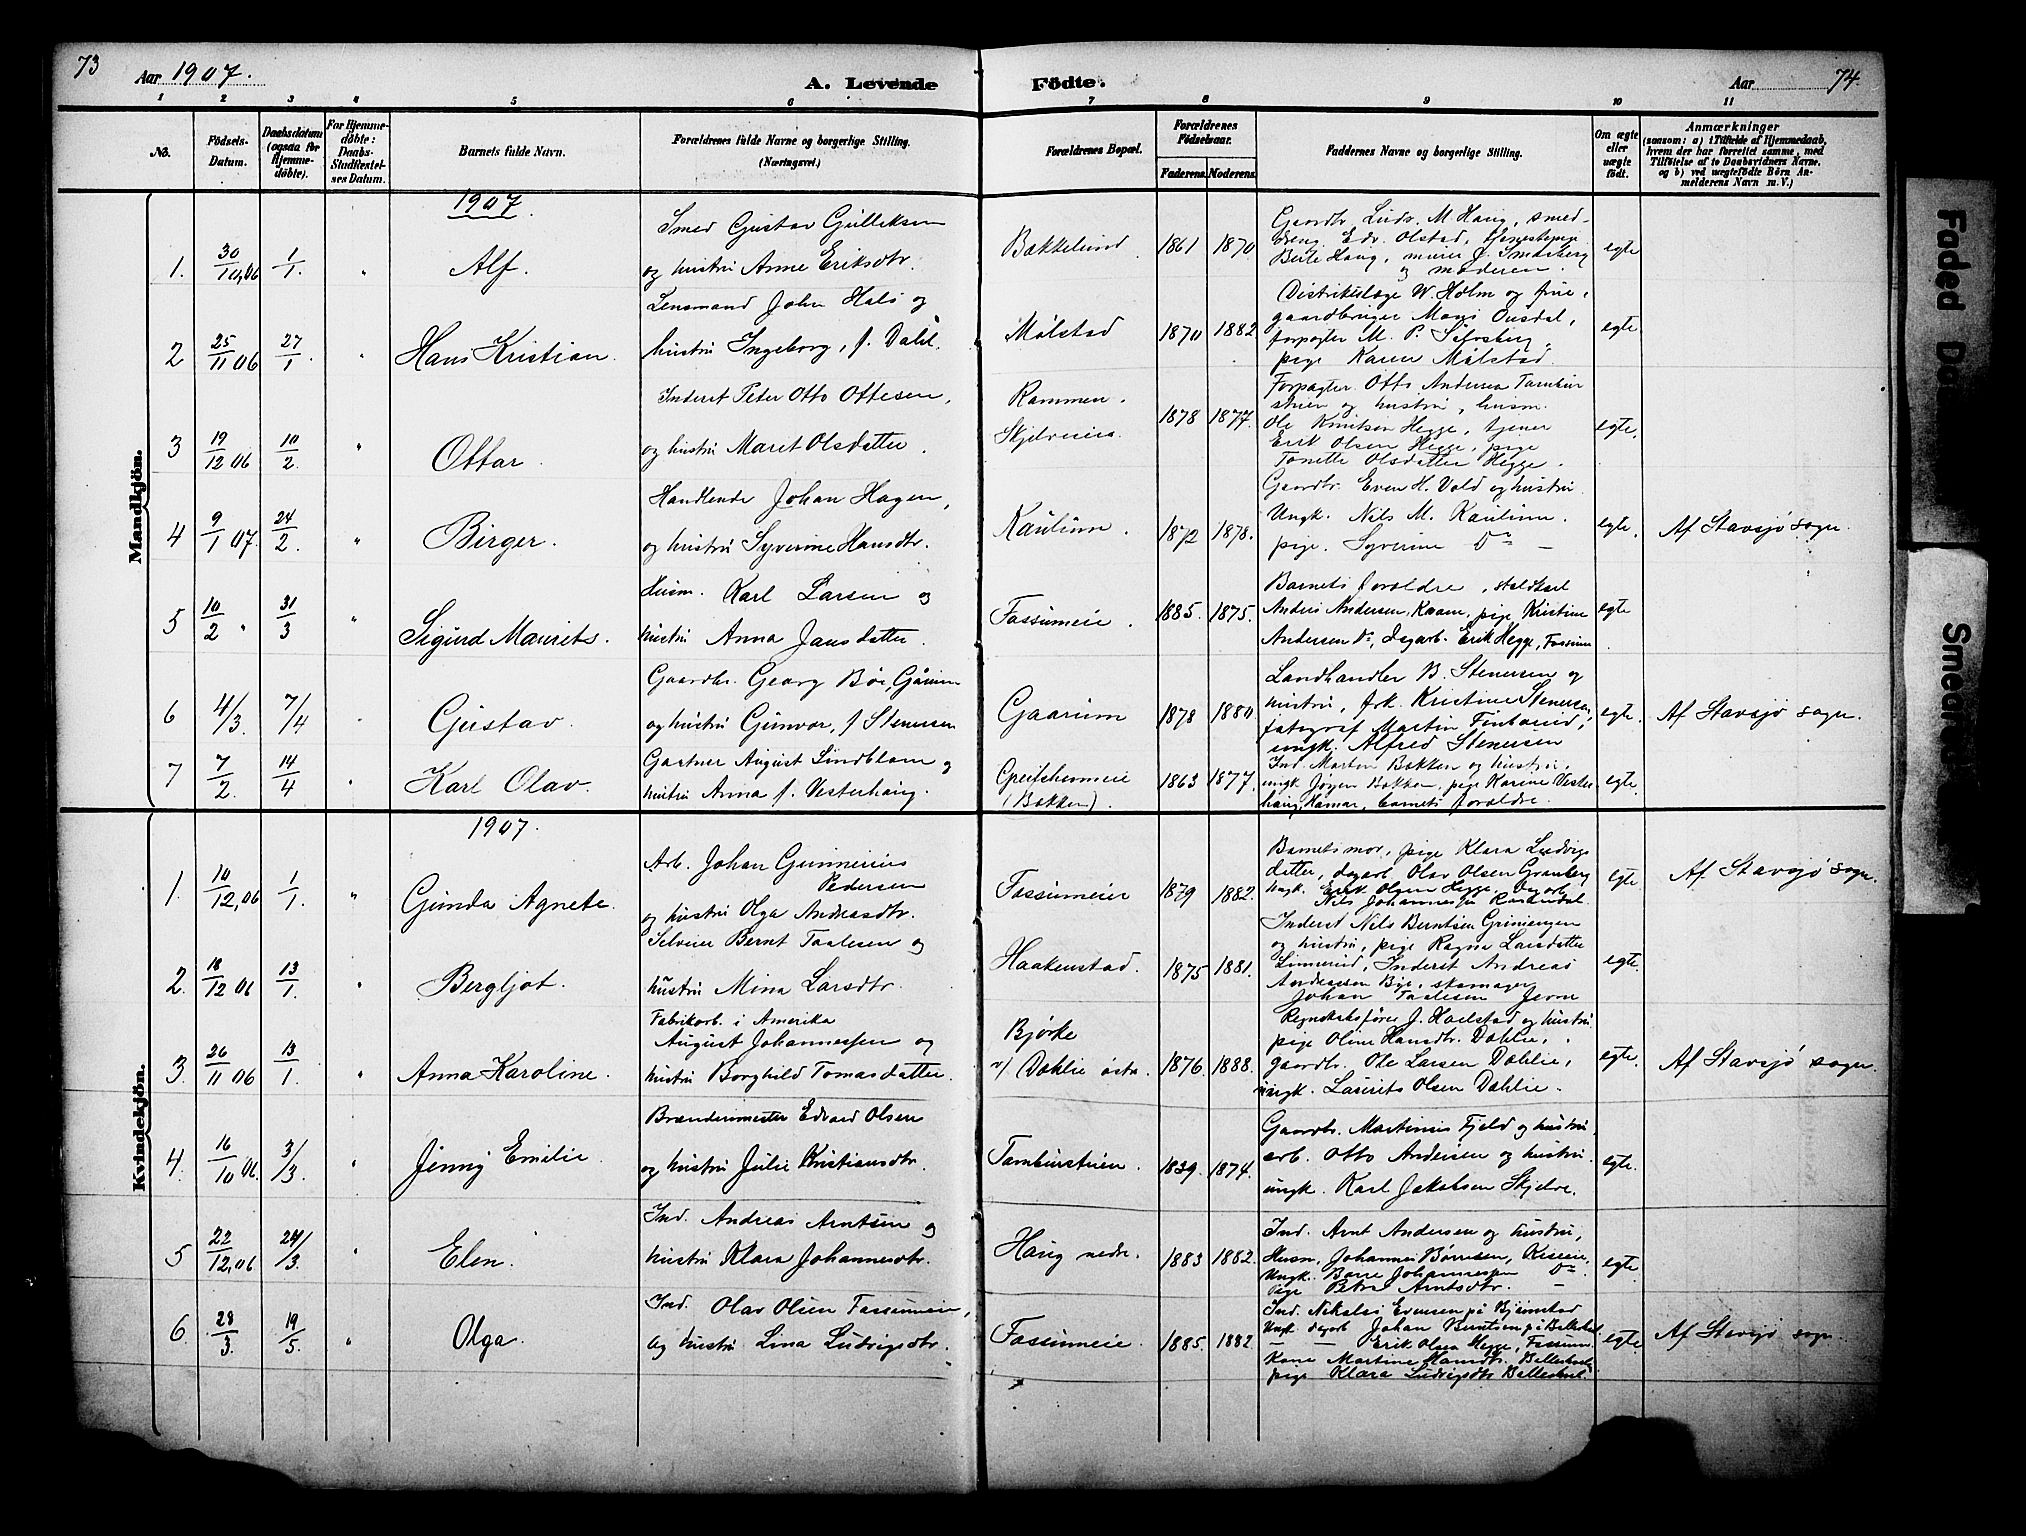 73
Aar 1907.
A. Levende Födte.
Aar
74.
1 2 3 4 5 6 7 8 9 10 11
No.
Födsels-Datum.
Daabsdatum (ogsaa for Hjemme-döbte).
For Hjemme-döbte: Daabs-Stadfæstel-ses Datum.
Barnets fulde Navn.
Forældrenes fulde Navne og borgerlige Stilling. (Næringsvei.)
Forældrenes Bopæl.
Forældrenes Födselsaar.
Faderens. Moderens.
Faddernes Navne og borgerlige Stilling.
Om ægte eller uægte födt.
Anmærkninger
(saasom: a) i Tilfælde af Hjemmedaab, hvem der har forrettet samme, med Tilföielse af to Daabsvidners Navne. og b) ved uægtefödte Börn An-melderens Navn m. V.)
Mandkjön.
1907.
1. 30/10,06 1/1. " Alf.
Smed Gustav Gulleksen
og hustru Anne Eriksdtr.
Bakkelund 1861 1870
Gaardbr. Ludv. M Haug, smed-
Edv. Olstad,
Berte Haug, murer J.
og moderen.
egte
2 25/11 06 27/1. " Hans Kristian.
Lensmand John Hals og
hustru Ingeborg, f. Dahl.
Mølstad 1870 1882
Distriktslæge W. Holm og frue,
gaardbruger Mons
forpagter M. P.
pige Karen Mølstad.
egte
3 19/12 06 10/2. " Ottar.
Inderst Peter Otto Ottesen,
og hustru Maret Olsdatter.
Rammen.
Skjelveeie. 1878 1877.
Forpagter Otto Andersen Tambur
stuen og hustru, husm.
Ole Knutsen Hegge, tjener
Erik Olsen Hegge, pige
Tonette Olsdatter Hegge.
egte.
4 9/1 07. 24/2. " Birger.
Handlende Johan Hagen,
og hustru Syverine Hansdtr.
Kaulum. 1872 1878.
Gaardbr. Even H. Vold og hustru
Ungk. Nils M. Kaulum.
pige. Syverine Do —
egte. Af Stavsjø sogn.
5 10/2 " 31/3 " Sigurd Maurits.
Husm. Karl Larsen og
hustru Anna Jansdatter.
Fossumeie. 1885. 1875.
Barnets forældre, staldkarl
Anders Andersen, Kvam, pige Kristine
Andersen Do, dagarb. Erik Hegge, Fossum
egte
6 4/3. 7/4 Gustav.
Gaardbr. Georg Bøe, Gårum
og hustru Gunvor, f Stenersen
Gaarum 1878 1880
Landhandler B. Stenersen og
hustru, frk. Kristine Stenersen,
fotograf Martin
ungk. Alfred Stenersen
egte. Af Stavsjø sogn.
7 7/2. 14/4 " Karl Olav.
Gartner August Lindblom og
hustru Anna f. Vesterhaug.
(Bakken). 1863 1877.
Ind. Morten Bakken og hustru,
ungk Jørgen Bakken, pige Karine Vester
haug, Hamar, barnets forældre.
egte.
Kvindekjön.
1907.
1. 10/12,06 1/1. " Gunda Agnete.
Arb. Johan Gunnerius
Pedersen
og hustru Olga Andreasdtr.
Fossumeie 1879 1882.
Barnets mor, pige Klara Ludvigs
datter, dagarb Olav Olsen Granberg
Ungk. Erik Olsen Hegge, Dagarb.
Nils Johannessen Rosendal.
egte Af Stavsjø sogn.
2. 18/12 06 13/1. " Bergljot.
Selveier Bernt Taalesen og
hustru Mina Larsdtr.
Haakenstad. 1875 1881.
Inderst Nils Berntsen
og hustru, pige Ragna Larsdatter
Linnerud, Inderst Andreas
Andreassen Bye, skomager
Johan Taalesen
egte.
3. 26/11 06 13/1. " Anna Karoline.
Fabrikarb. i Amerika
August Johannessen og
hustru Borghild Tomasdatter.
Bjørke
v/ Dæhlie østr. 1876 1888.
Regnskabsfører J. Hoelstad og hustru
pige Oline Hansdtr. Dæhlie,
gaardbr. Ole Larsen Dæhlie,
ungk. Laurits Olsen Dæhlie.
egte. Af Stavsjø sogn.
4. 16/10 06. 3/3. " Jenny Emilie.
Brændemester Edvard Olsen
og hustru Julie Kristiansdtr.
Tamburstuen. 1839. 1874.
Gaardbr. Martinus Fjeld og hustru.
arb. Otto Andersen og hustru.
ungk. Karl Jakobsen Skjelve.
egte.
5 22/12,06 24/3. " Elen.
Ind. Andreas Arntsen og
hustru Klara Johannesdtr.
Haug nedre. 1883 1882.
Ind. Arnt Andersen og hustru,
Husm. Johannes Børresen,
Ungk. Børre Johannessen Do.
pige Petra Arntsdtr. —
egte.
6 28/3. 19/5. " Olga.
Ind. Olav Olsen Fossumeie,
og hustru Lina Ludvigsdtr.
Fossumeie 1885. 1882.
Ind. Nikolai Evensen på Bjørnstad
Ungk dagarb Johan Berntsen på
— — Erik Olsen Hegge, Fossum.
Kone Martine Hansdtr.
pige Klara Ludvigsdtr
egte. Af Stavsjø sogn.
Faded Da
Smeared